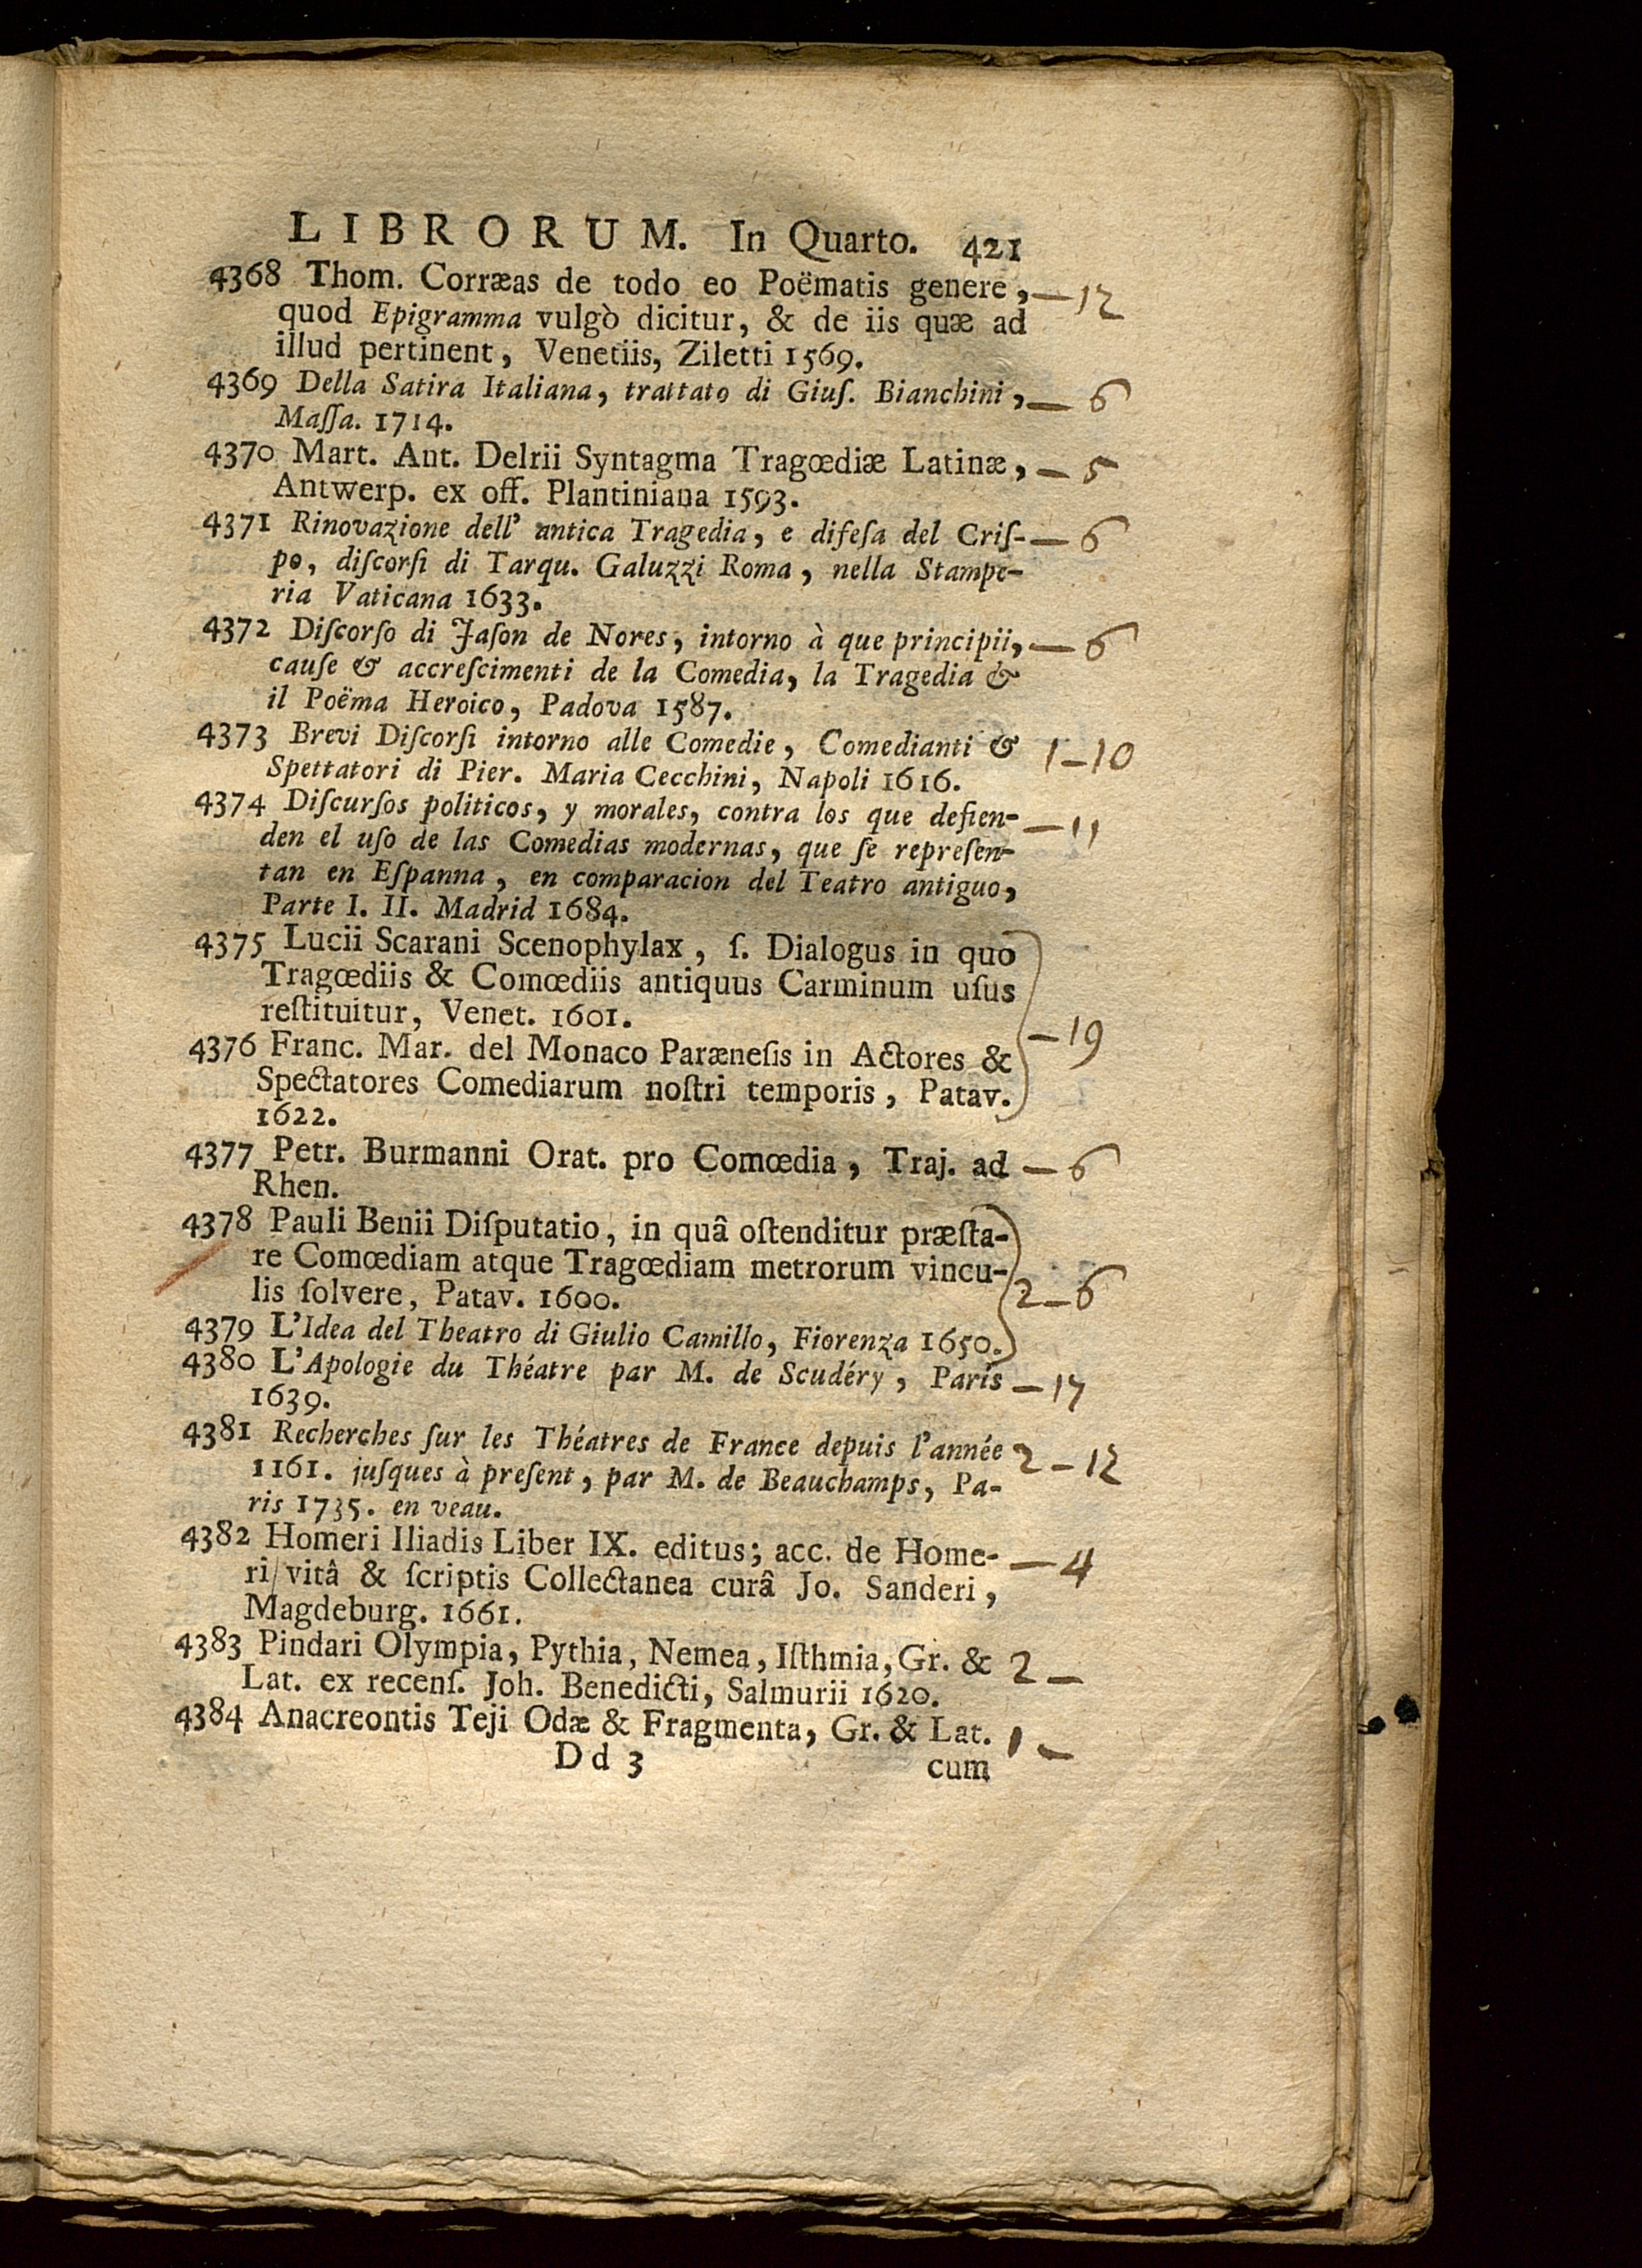 LIBRORUM. In Quarto. 421
4368 Thom. Corræas de todo eo Poëmatis genere, — 12
quod Epigramma vulgò dicitur, & de iis quæ ad
illud pertinent, Venetiis, Ziletti 1569.
4369 Della Satira Italiana, trattato di Giuſ. Bianchini, — 6
Maſſa. 1714.
4370 Mart. Ant. Delrii Syntagma Tragœdiæ Latinæ, — 5
Antwerp. ex off. Plantiniana 1593.
4371 Rinovazione dell' antica Tragedia, e difeſa del Criſ- — 6
po, diſcorſi di Tarqu. Galuzzi Roma, nella Stampe-
ria Vaticana 1633.
4372 Diſcorſo di Jaſon de Nores, intorno à que principii, — 6
cauſe & accreſcimenti de la Comedia, la Tragedia &
il Poëma Heroico, Padova 1587.
4373 Brevi Diſcorſi intorno alle Comedie, Comedianti & 1 — 10
Spettatori di Pier. Maria Cecchini, Napoli 1616.
4374 Diſcurſos politicos, y morales, contra los que defien- — 11
den el uſo de las Comedias modernas, que ſe repreſen-
tan en Eſpanna, en comparacion del Teatro antiguo,
Parte I. II. Madrid 1684.
4375 Lucii Scarani Scenophylax, ſ. Dialogus in quo
Tragœdiis & Comœdiis antiquus Carminum uſus
reſtituitur, Venet. 1601.
— 19
4376 Franc. Mar. del Monaco Paræneſis in Actores &
Spectatores Comediarum noſtri temporis, Patav.
1622.
4377 Petr. Burmanni Orat. pro Comœdia, Traj. ad — 6
Rhen.
4378 Pauli Benii Diſputatio, in quâ oſtenditur præſta-
re Comœdiam atque Tragœdiam metrorum vincu-
lis ſolvere, Patav. 1600. 2 — 6
4379 L'Idea del Theatro di Giulio Camillo, Fiorenza 1650.
4380 L'Apologie du Théatre par M. de Scudéry, Paris — 17
1639.
4381 Recherches ſur les Théatres de France depuis l'année 2 — 12
1161. juſques à preſent, par M. de Beauchamps, Pa-
ris 1735. en veau.
4382 Homeri Iliadis Liber IX. editus; acc. de Home- — 4
ri vitâ & ſcriptis Collectanea curâ Jo. Sanderi,
Magdeburg. 1661.
4383 Pindari Olympia, Pythia, Nemea, Iſthmia, Gr. & 2 —
Lat. ex recenſ. Joh. Benedicti, Salmurii 1620.
4384 Anacreontis Teji Odæ & Fragmenta, Gr. & Lat. 1 —
Dd 3 cum